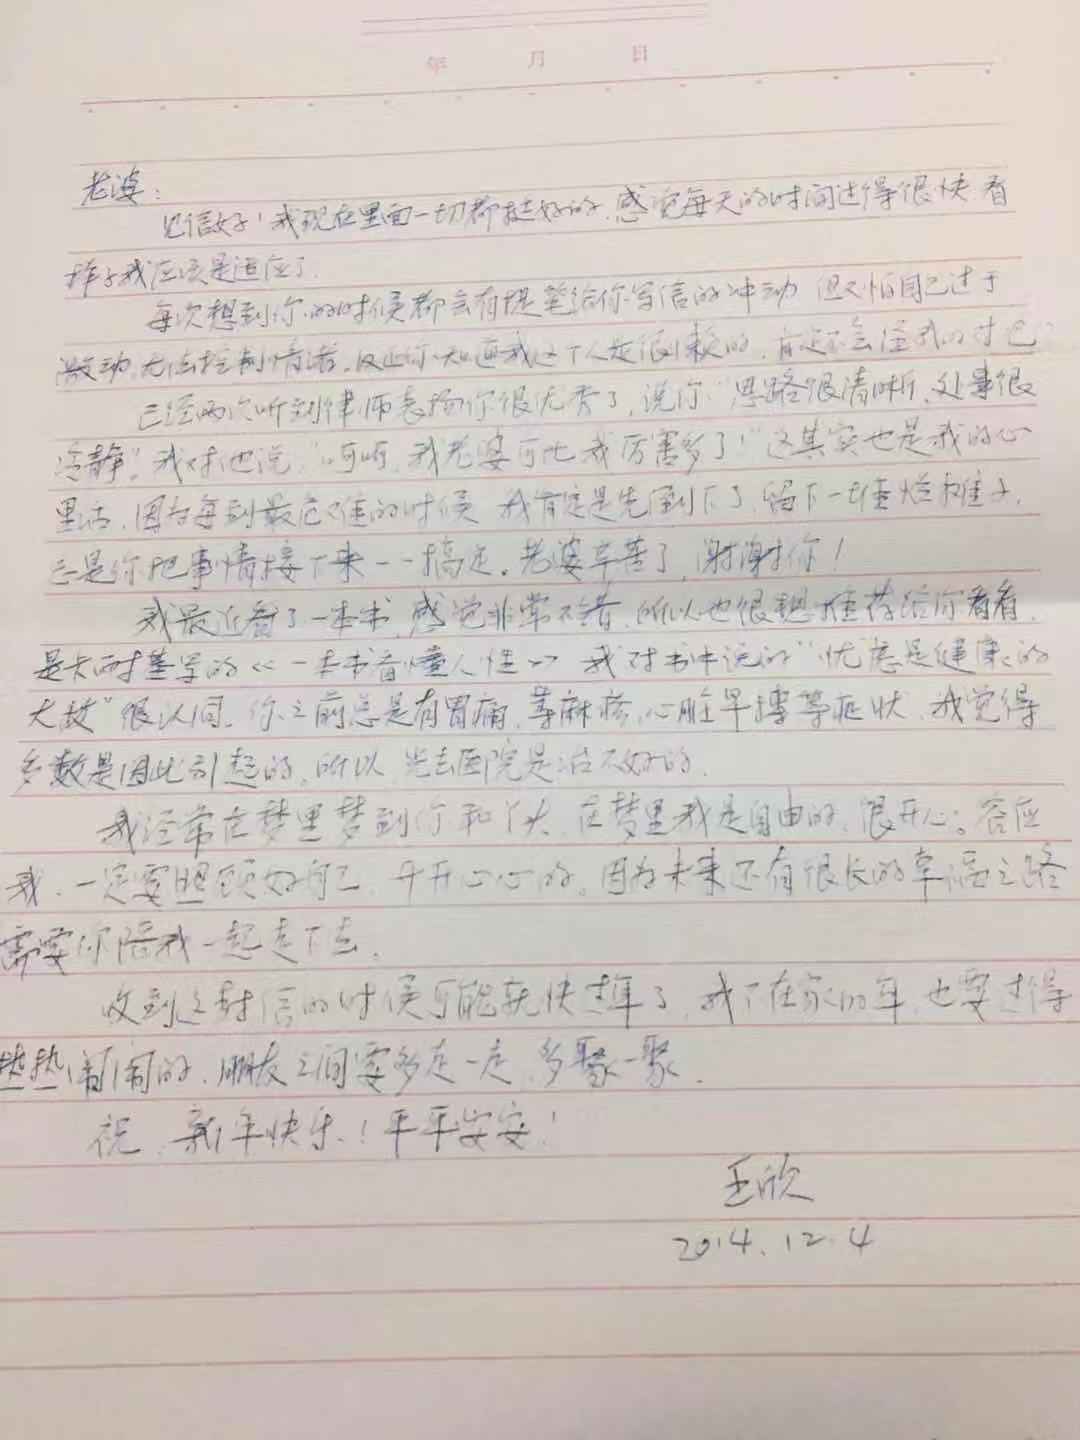 年 月 日
老婆：
见信好！我现在里面一切都挺好的，感觉每天的时间过得很快，看
样子我应该是适应了。
每次想到你的时候都会有提笔给你写信的冲动，但又怕自己过于
激动，无法控制情绪，反正你知道我这个人是很懒的，肯定不会怪我的对吧？
已经两次听到律师表扬你很优秀了，说你“思路很清晰，处事很
冷静”。我对他说：“呵呵，我老婆可比我厉害多了！”这其实也是我的心
里话，因为每到最危难的时候，我肯定是先倒下了，留下一堆烂摊子，
总是你把事情接下来一一搞定。老婆辛苦了，谢谢你！
我最近看了一本书，感觉非常不错，所以也很想推荐给你看看，
是卡耐基写的《一本书看懂人性》，我对书中说的“忧虑是健康的
大敌”很认同。你之前总是有胃痛、荨麻疹、心脏早搏等症状，我觉得
多数是因此引起的，所以，光去医院是治不好的。
我经常在梦里梦到你和丫头，在梦里我是自由的，很开心。答应
我，一定要照顾好自己，开开心心的，因为未来还有很长的幸福之路
需要你陪我一起走下去。
收到这封信的时候可能就快过年了，我不在家的年，也要过得
热热闹闹的，朋友之间要多走一走，多聚一聚。
祝：新年快乐！平平安安！
王欣
2014.12.4